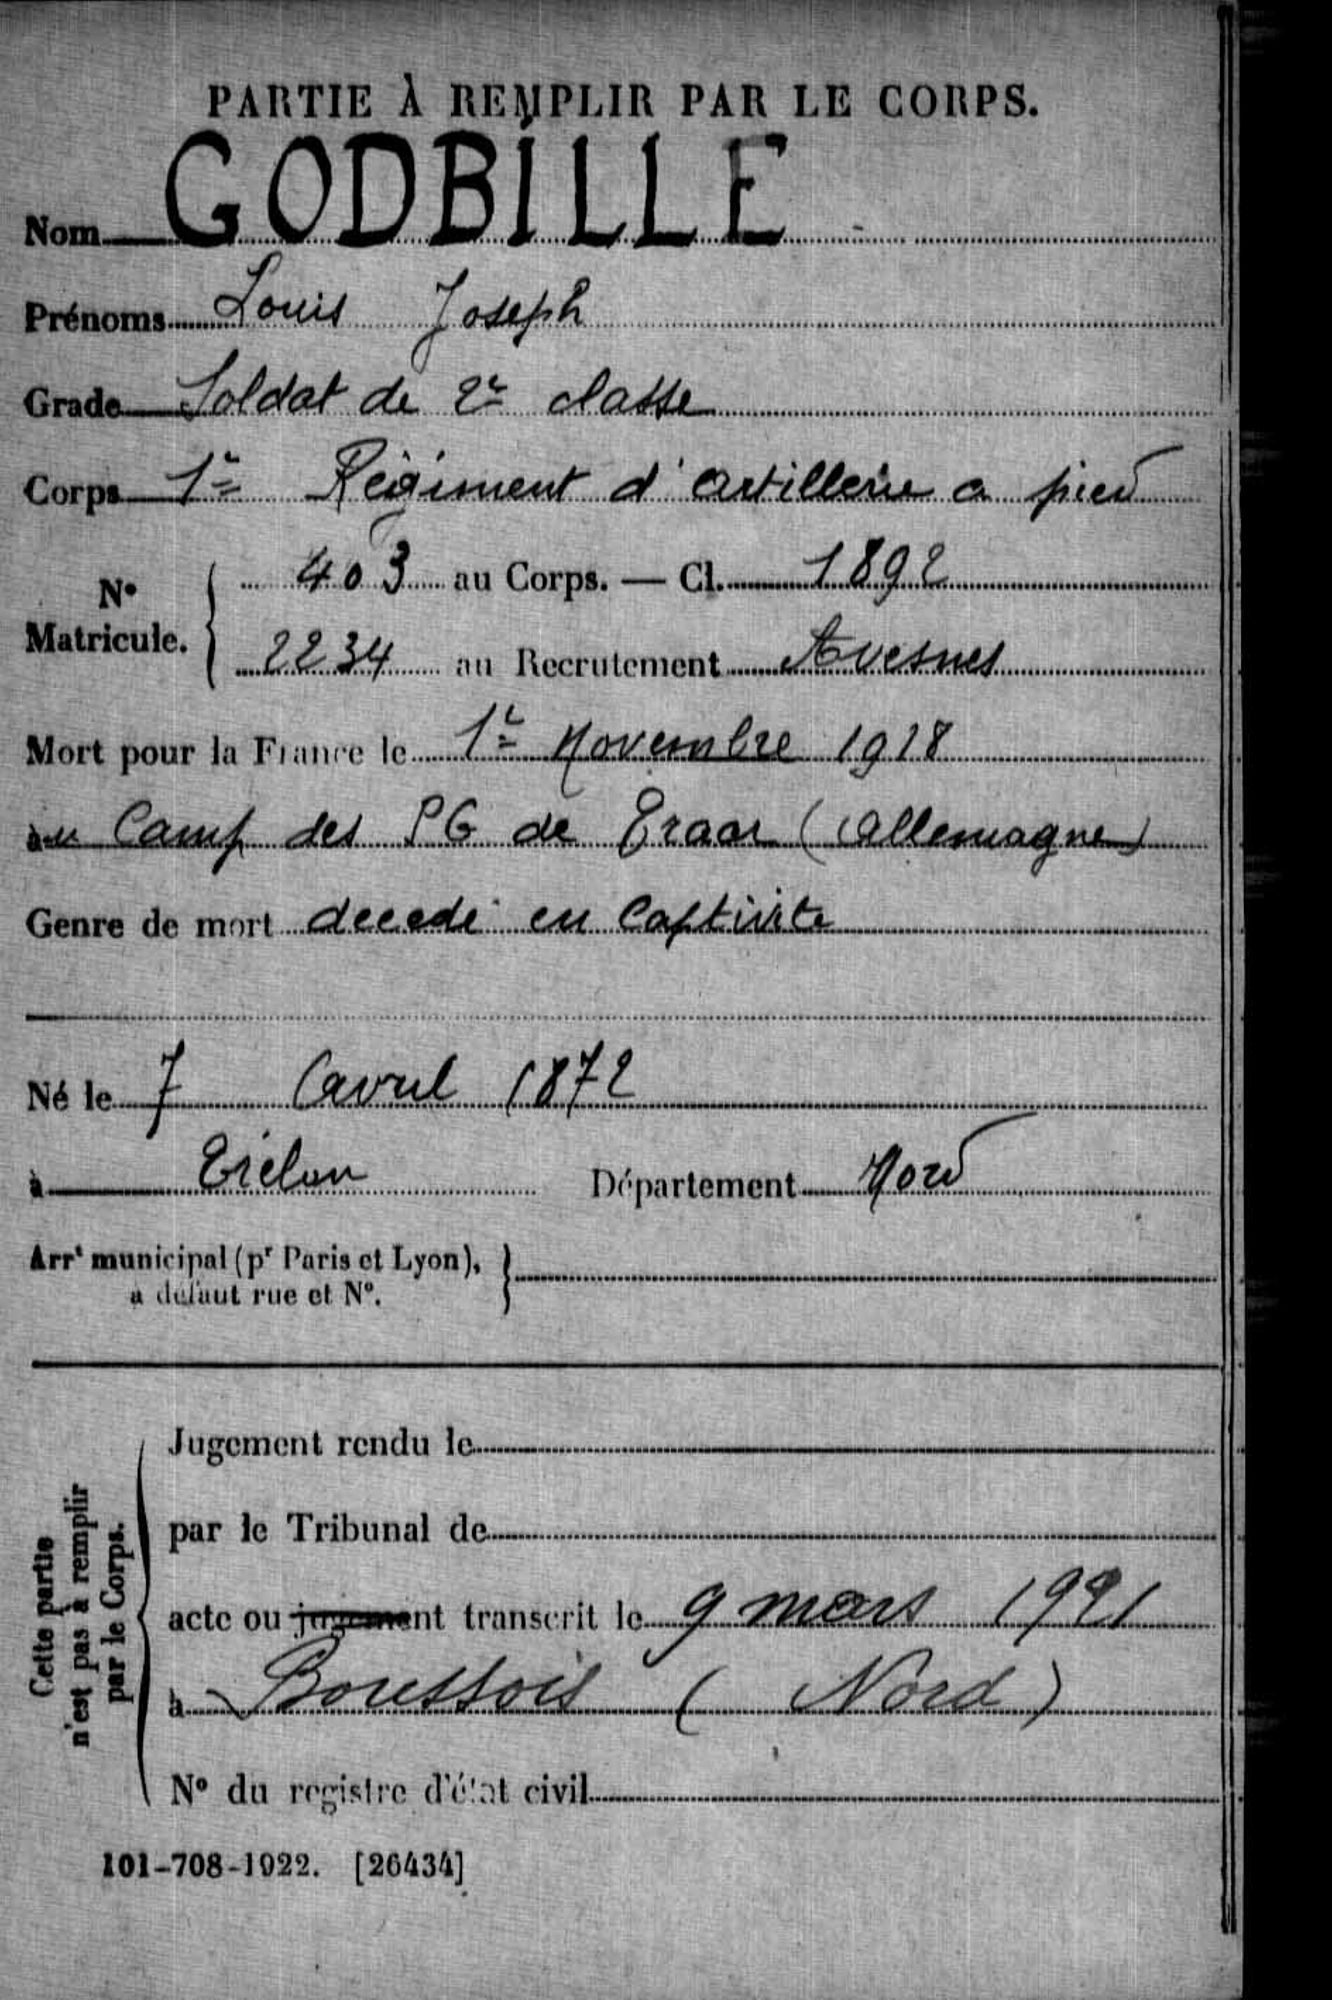 PARTIE À REMPLIR PAR LE CORPS.
Nom GODBILLE
Prénoms Louis Joseph
Grade Soldat de 2e classe
Corps 1er Régiment d'artillerie a pied
No Matricule. { 403 au Corps. — Cl. 1892
2234 au Recrutement Avesnes
Mort pour la France le 1er Novembre 1918
au Camp des PG de (Allemagne)
Genre de mort décédé en Captivité
Né le 7 avril 1872
à Trélon Département Nord
Arrt municipal (pr Paris et Lyon), }
à défaut rue et No.
Cette partie n'est pas à remplir par le Corps.
Jugement rendu le
par le Tribunal de
acte ou jugement transcrit le 9 mars 1921
à Boussois (Nord)
No du registre d'état civil
101-708-1922. [26434]